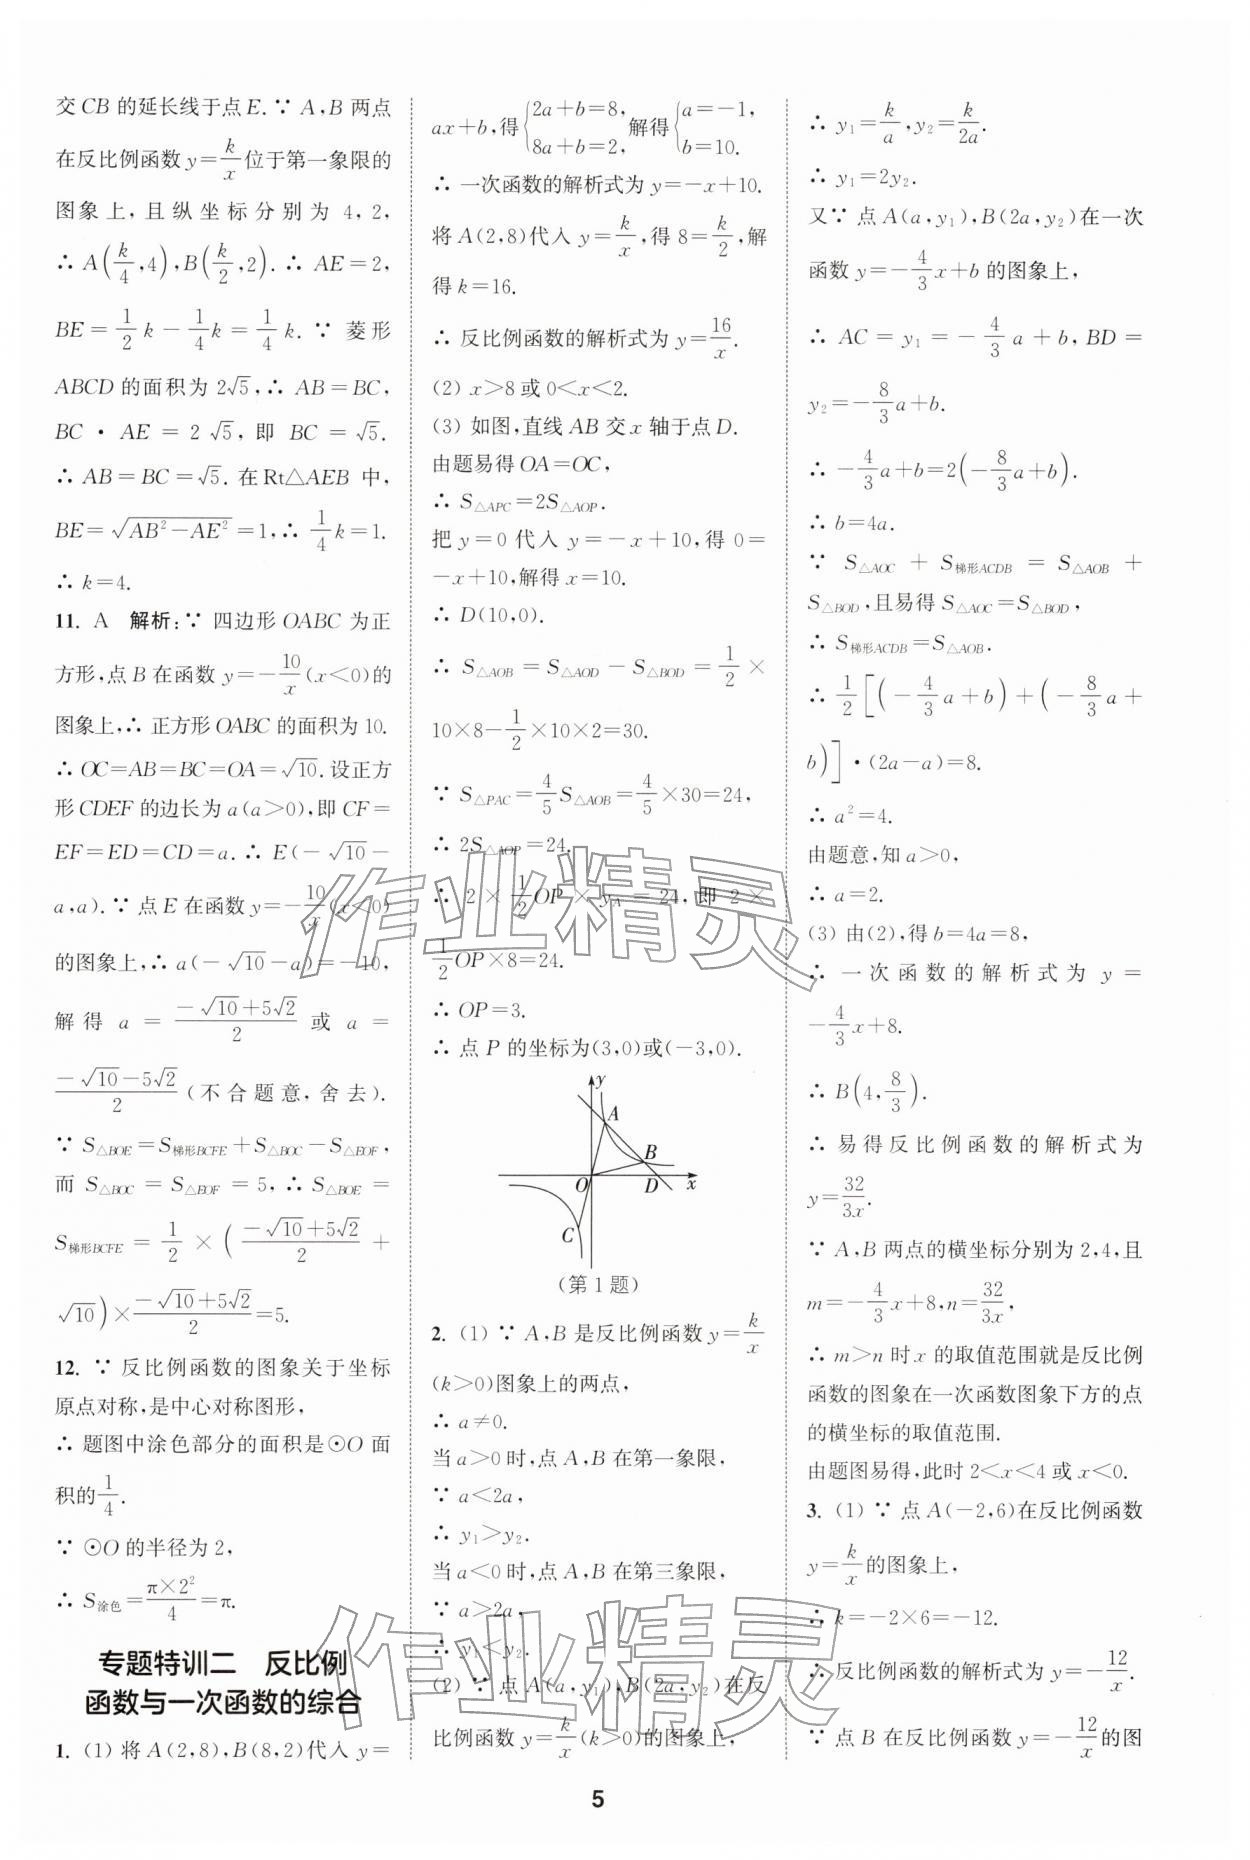 交CB的延长线于点E.∵ A,B两点
在反比例函数y=k/x位于第一象限的
图象上,且纵坐标分别为4,2,
∴ A(k/4,4),B(k/2,2).∴ AE=2,
BE=1/2k-1/4k=1/4k.∵ 菱形
ABCD的面积为2√5,∴ AB=BC,
BC·AE=2√5,即BC=√5.
∴ AB=BC=√5.在Rt△AEB中,
BE=√(AB²-AE²)=1,∴ 1/4k=1.
∴ k=4.
11. A 解析:∵ 四边形OABC为正
方形,点B在函数y=-10/x(x<0)的
图象上,∴ 正方形OABC的面积为10.
∴ OC=AB=BC=OA=√10.设正方
形CDEF的边长为a(a>0),即CF=
EF=ED=CD=a.∴ E(-√10-
a,a).∵ 点E在函数y=-10/x(x<0)
的图象上,∴ a(-√10-a)=-10,
解得a=(-√10+5√2)/2或a=
(-√10-5√2)/2(不合题意,舍去).
∵ S△BOE=S梯形BCFE+S△BOC-S△EOF,
而S△BOC=S△EOF=5,∴ S△BOE=
S梯形BCFE=1/2×((-√10+5√2)/2+
√10)×(-√10+5√2)/2=5.
12. ∵ 反比例函数的图象关于坐标
原点对称,是中心对称图形,
∴ 题图中涂色部分的面积是⊙O面
积的1/4.
∵ ⊙O的半径为2,
∴ S涂色=π×2²/4=π.
专题特训二 反比例
函数与一次函数的综合
1. (1) 将A(2,8),B(8,2)代入y=
ax+b,得{2a+b=8, 8a+b=2,解得{a=-1, b=10.
∴ 一次函数的解析式为y=-x+10.
将A(2,8)代入y=k/x,得8=k/2,解
得k=16.
∴ 反比例函数的解析式为y=16/x.
(2) x>8或0<x<2.
(3) 如图,直线AB交x轴于点D.
由题易得OA=OC,
∴ S△APC=2S△AOP.
把y=0代入y=-x+10,得0=
-x+10,解得x=10.
∴ D(10,0).
∴ S△AOB=S△AOD-S△BOD=1/2×
10×8-1/2×10×2=30.
∵ S△PAC=4/5S△AOB=4/5×30=24,
∴ 2S△AOP=24.
∴ 2×1/2OP×yA=24,即2×
1/2OP×8=24.
∴ OP=3.
∴ 点P的坐标为(3,0)或(-3,0).
y
A
B
O
D
x
C
(第1题)
2. (1) ∵ A,B是反比例函数y=k/x
(k>0)图象上的两点,
∴ a≠0.
当a>0时,点A,B在第一象限,
∵ a<2a,
∴ y₁>y₂.
当a<0时,点A,B在第三象限,
∵ a>2a,
∴ y₁<y₂.
(2) ∵ 点A(a,y₁),B(2a,y₂)在反
比例函数y=k/x(k>0)的图象上,
∴ y₁=k/a,y₂=k/2a.
∴ y₁=2y₂.
又∵ 点A(a,y₁),B(2a,y₂)在一次
函数y=-4/3x+b的图象上,
∴ AC=y₁=-4/3a+b,BD=
y₂=-8/3a+b.
∴ -4/3a+b=2(-8/3a+b).
∴ b=4a.
∵ S△AOC+S梯形ACDB=S△AOB+
S△BOD,且易得S△AOC=S△BOD,
∴ S梯形ACDB=S△AOB.
∴ 1/2[(-4/3a+b)+(-8/3a+
b)]·(2a-a)=8.
∴ a²=4.
由题意,知a>0,
∴ a=2.
(3) 由(2),得b=4a=8,
∴ 一次函数的解析式为y=
-4/3x+8.
∴ B(4,8/3).
∴ 易得反比例函数的解析式为
y=32/3x.
∵ A,B两点的横坐标分别为2,4,且
m=-4/3x+8,n=32/3x,
∴ m>n时x的取值范围就是反比例
函数的图象在一次函数图象下方的点
的横坐标的取值范围.
由题图易得,此时2<x<4或x<0.
3. (1) ∵ 点A(-2,6)在反比例函数
y=k/x的图象上,
∴ k=-2×6=-12.
∴ 反比例函数的解析式为y=-12/x.
∵ 点B在反比例函数y=-12/x的图
5
作业精灵
作业精灵